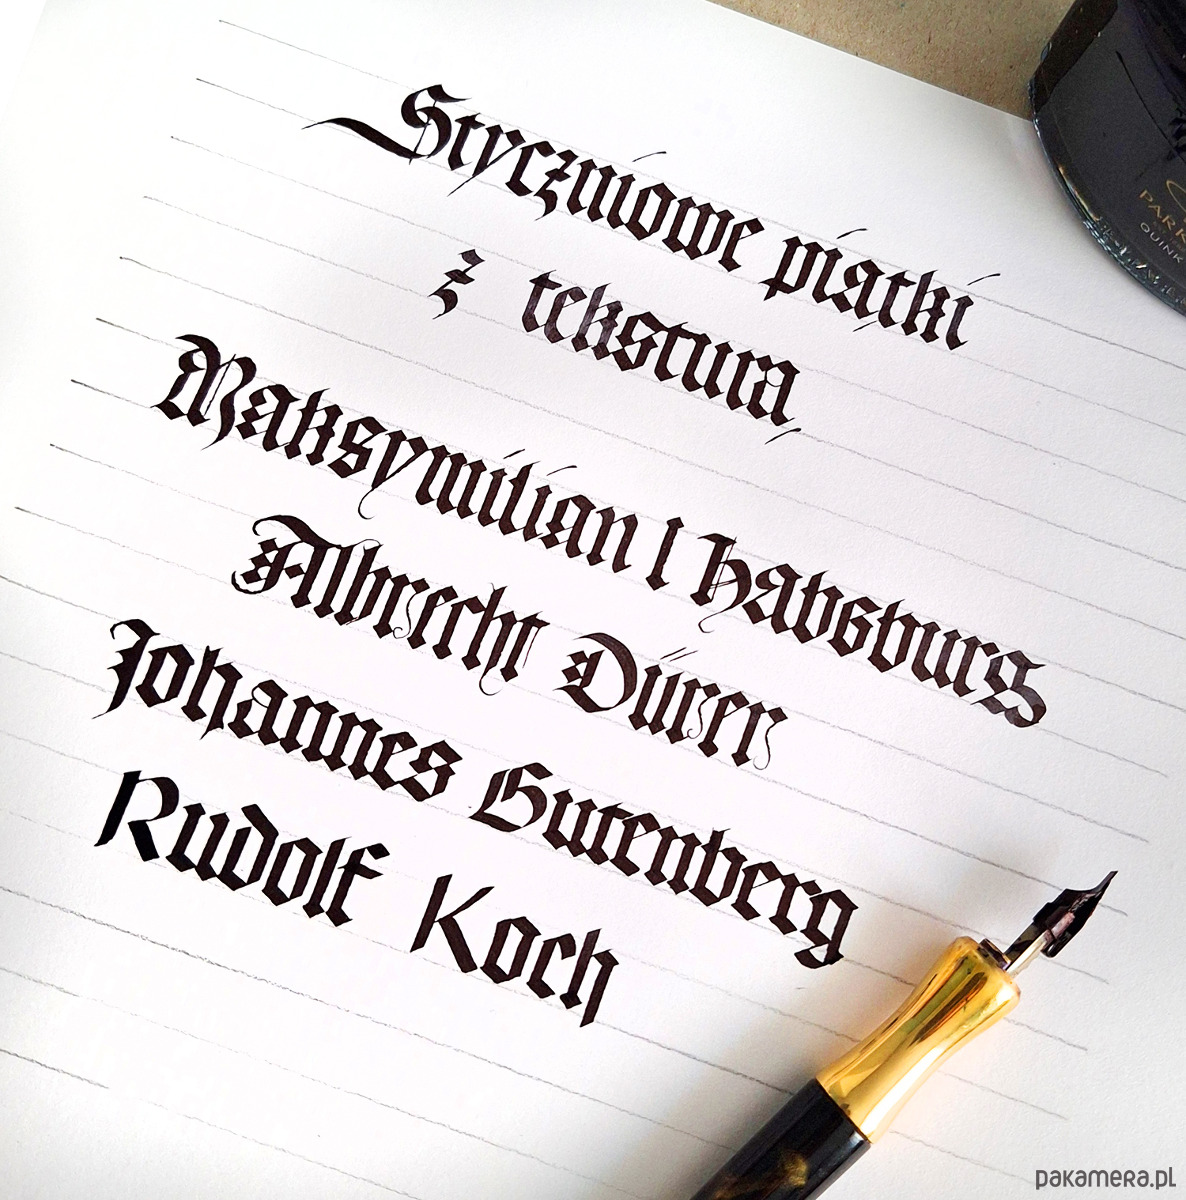 Styczniowe piątki
z teksturą
Maksymilian I Habsburg
Albrecht Dürer
Johannes Gutenberg
Rudolf Koch
PARK
QUINK
pakamera.pl